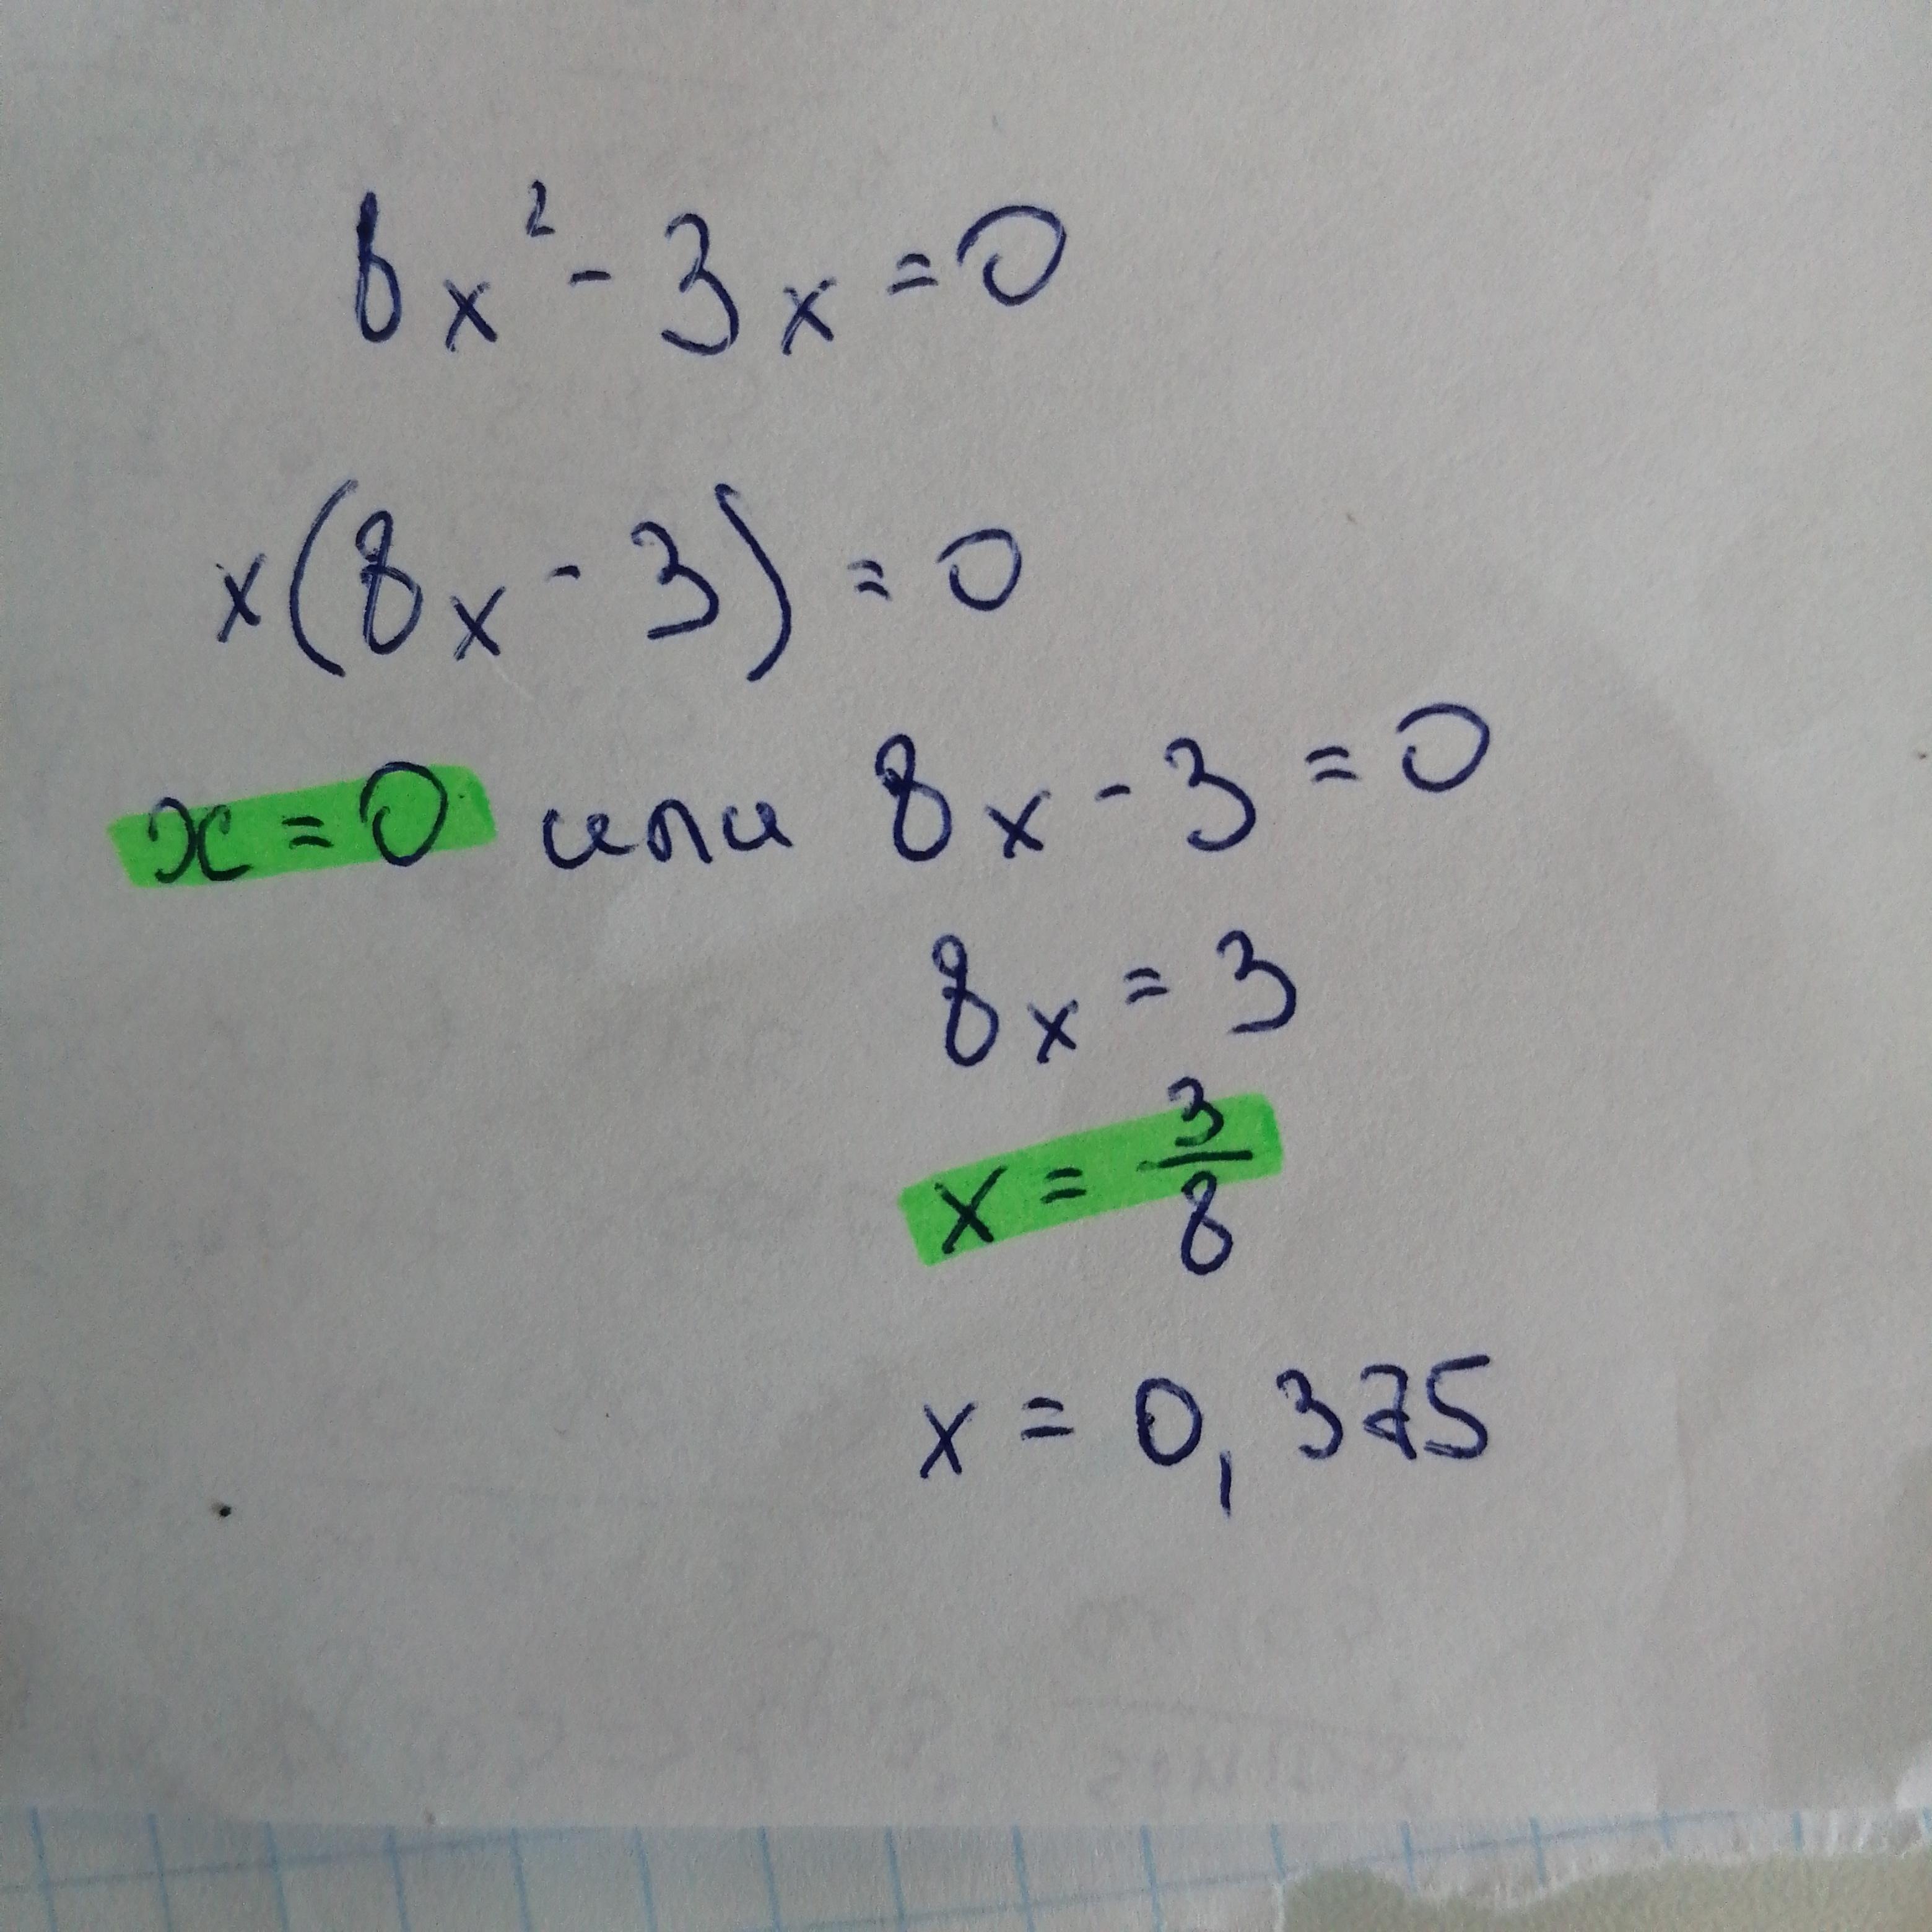 8x² - 3x = 0
x(8x - 3) = 0
x = 0 или 8x - 3 = 0
8x = 3
x = 3/8
x = 0,375